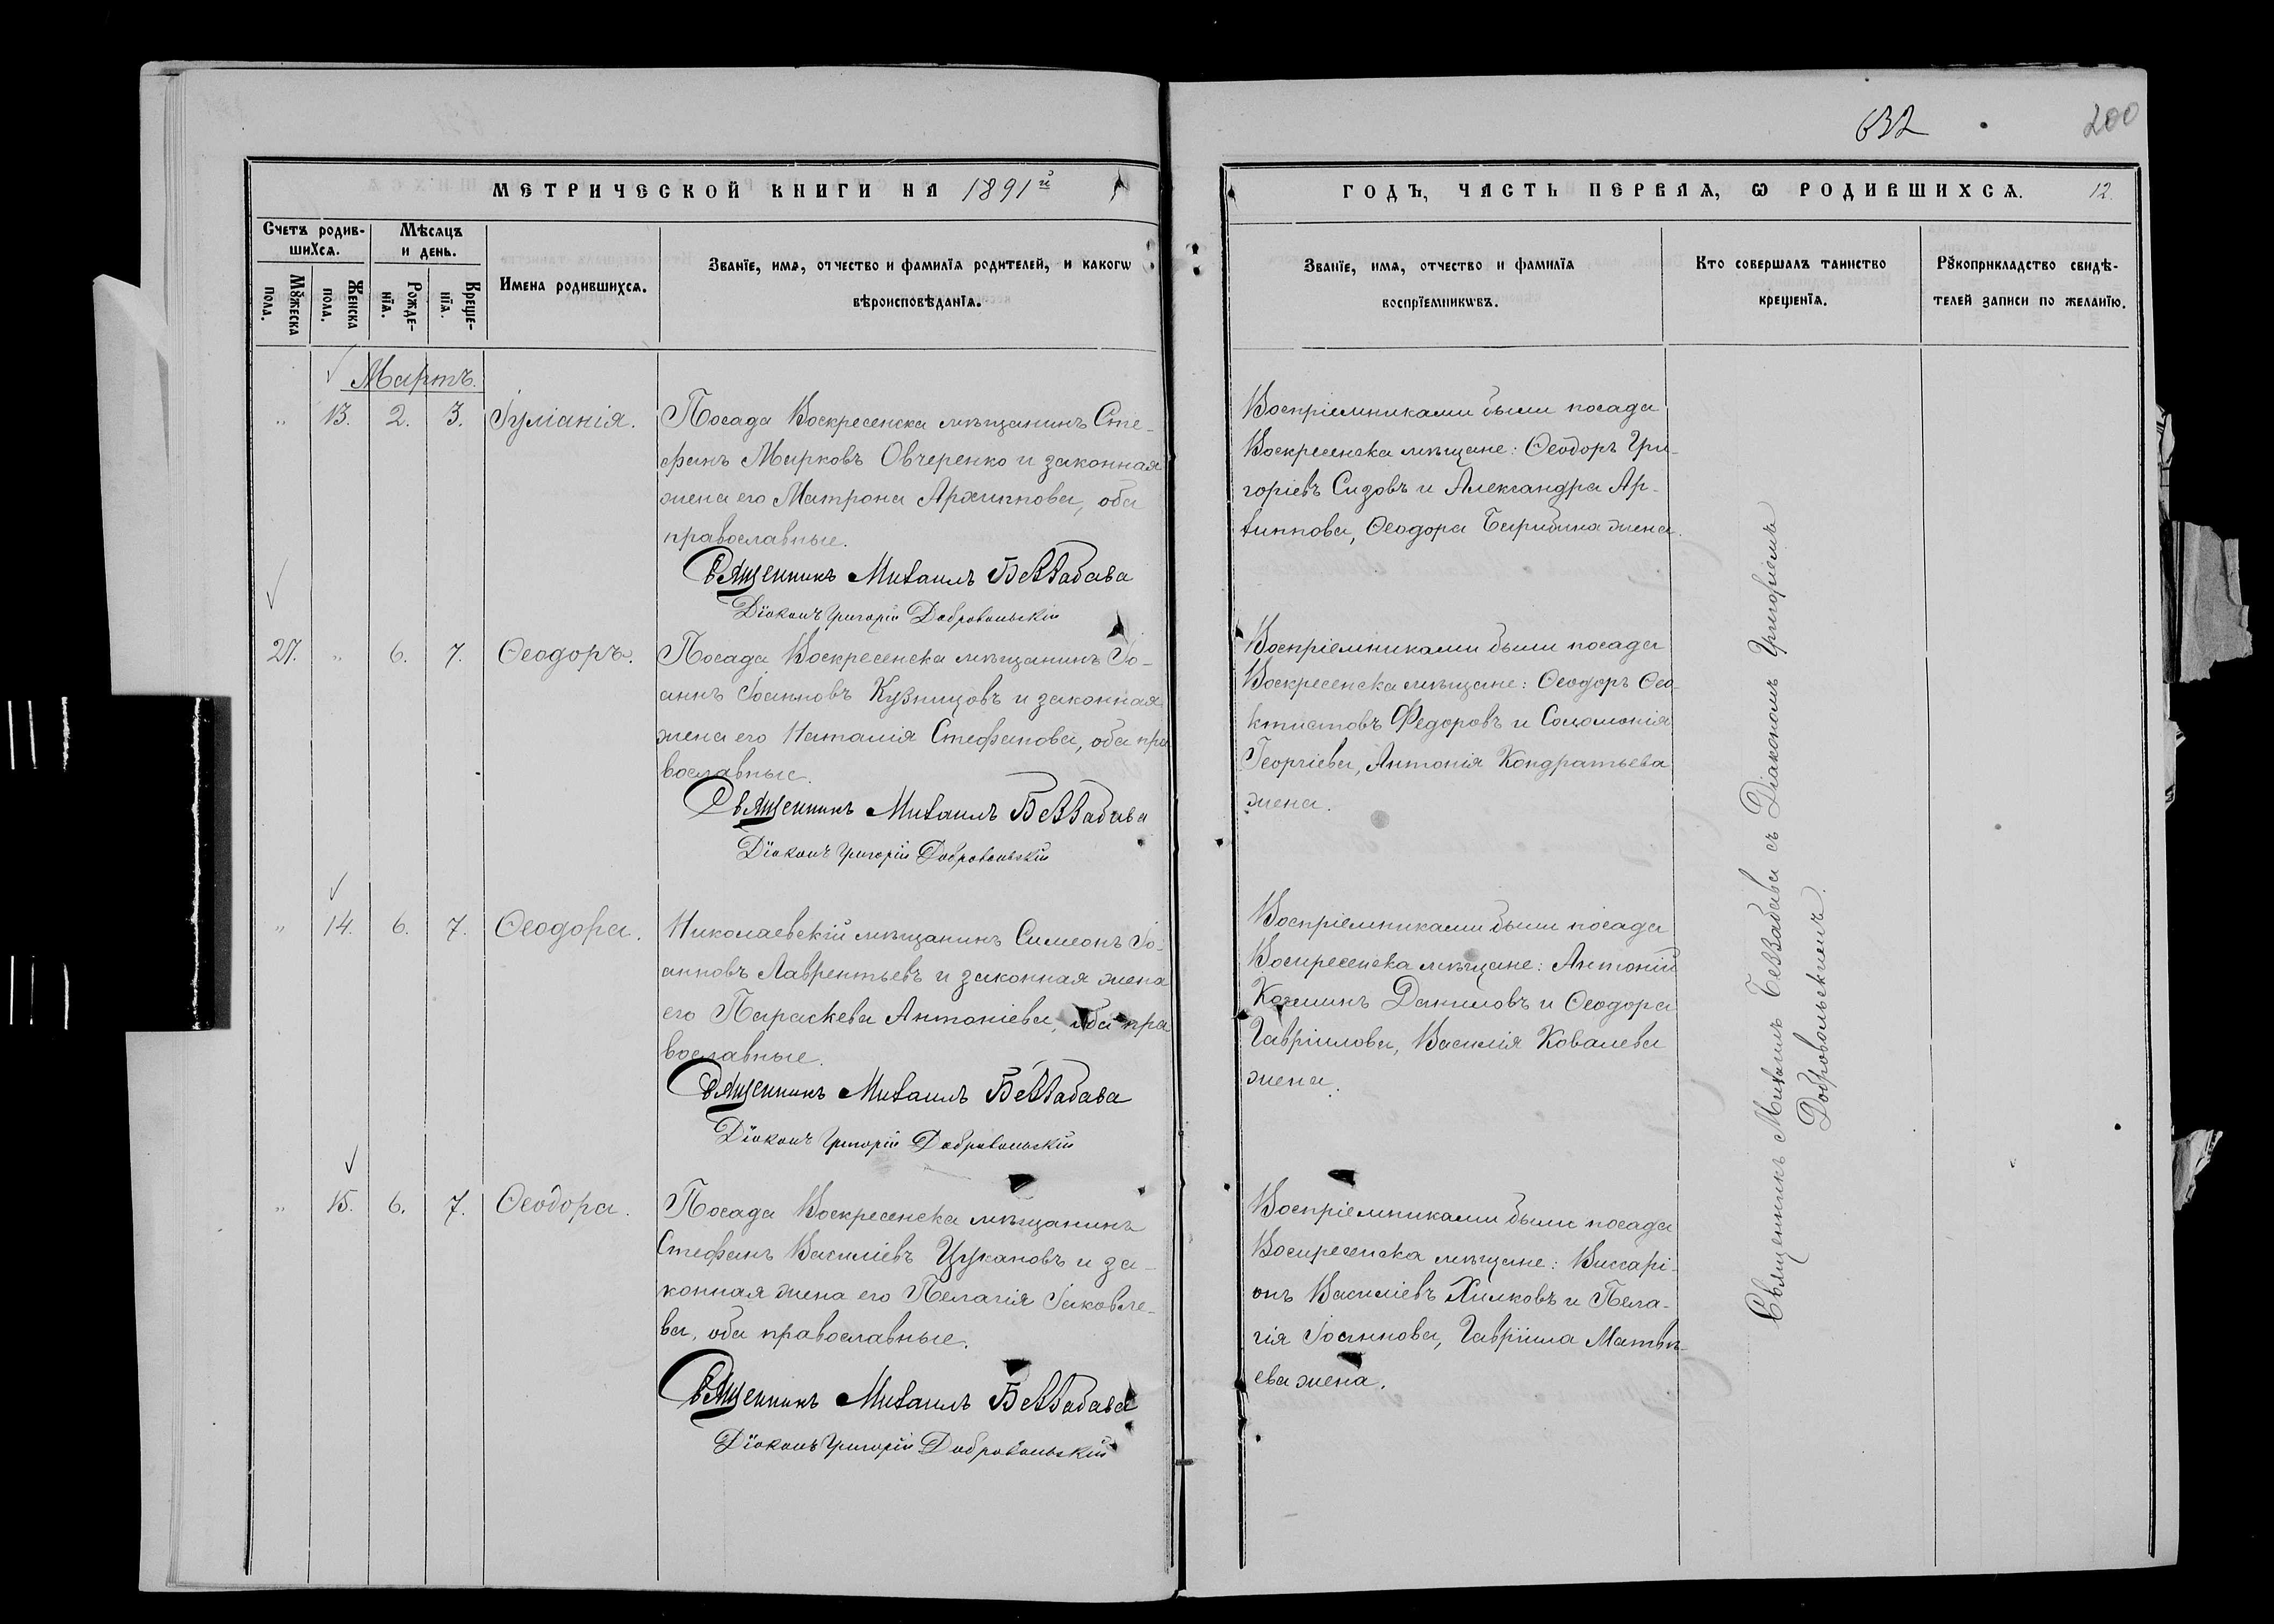 632
200
МЕТРИЧЕСКОЙ КНИГИ НА 1891й
ГОДЪ, ЧАСТЬ ПЕРВАѦ, Ѡ РОДИВШИХСѦ.
12.
Счетъ родив-
шихсѧ.
Мѣсѧцъ
и день.
Имена родившихсѧ.
Званїе, имѧ, отчество и фамилїѧ родителей, и какогѡ
вѣроисповѣданїѧ.
Мꙋжеска
пола.
Женска
пола.
Рожде-
нїѧ.
Креще-
нїѧ.
Званїе, имѧ, отчество и фамилїѧ
воспрїемникѡвъ.
Кто совершалъ таинство
крещенїѧ.
Рꙋкоприкладство свидѣ-
телей записи по желанїю.
Мартъ.
„ 13. 2. 3. Іуліанія.
Посада Воскресенска мѣщанинъ Сте-
фанъ Марковъ Овчеренко и законная
жена его Матрона Архиппова, оба
православные.
Священникъ Михаилъ Беззабава
Дїаконъ Григорій Добровольскій
Воспріемниками были посада
Воскресенска мѣщане: Ѳеодоръ Гри-
горіевъ Сизовъ и Александра Ар-
хиппова, Ѳеодора Барибина жена.
27. „ 6. 7. Ѳеодоръ.
Посада Воскресенска мѣщанинъ Іо-
аннъ Іоанновъ Кузницовъ и законная
жена его Наталія Стефанова, оба пра
вославные.
Священникъ Михаилъ Беззабава
Дїаконъ Григорій Добровольскій
Воспріемниками были посада
Воскресенска мѣщане: Ѳеодоръ Ѳео-
ктистовъ Федоровъ и Соломонія
Георгіева, Антонія Кондратьева
жена.
„ 14. 6. 7. Ѳеодора.
Николаевскій мѣщанинъ Симеонъ Іо-
анновъ Лаврентьевъ и законная жена
его Параскева Антоніева, оба пра
вославные.
Священникъ Михаилъ Беззабава
Дїаконъ Григорій Добровольскій
Воспріемниками были посада
Воскресенска мѣщане: Антоній
Козминъ Даниловъ и Ѳеодора
Гавріилова, Василія Ковалева
жена.
„ 15. 6. 7. Ѳеодора.
Посада Воскресенска мѣщанинъ
Стефанъ Василіевъ Цукановъ и за-
конная жена его Пелагія Іаковле-
ва, оба православные.
Священникъ Михаилъ Беззабава
Дїаконъ Григорій Добровольскій
Воспріемниками были посада
Воскресенска мѣщане: Виссарі-
онъ Василіевъ Хилковъ и Пела-
гія Іоаннова, Гавріила Матвѣ-
ева жена.
Священникъ Михаилъ Беззабава съ Діакономъ Григоріемъ
Добровольскимъ.